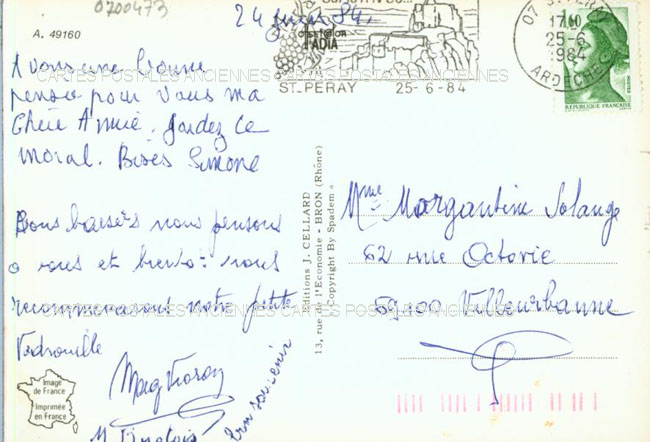 0700473
24 Juin 84.
A. 49160
Avons une bonne
pensée pour vous ma
Chère Amie. Gardez le
moral. Bises Simone
Bons baisers nous pensons
a vous et bientot nous
recommencerons notre petite
Vadrouille
bon souvenir
Image
de France
Imprimée
en France
Editions J. CELLARD
13, rue de l'Economie - BRON (Rhône)
Copyright By Spadem
ST. PERAY 25-6-84
07 ST. PERAY
17H00
25-6
1984
ARDECHE
REPUBLIQUE FRANÇAISE
Mme Margantine Solange
62 rue Octavie
69100 Villeurbanne
CARTES POSTALES ANCIENNES CARTES POSTALES ANCIENNES
CARTES POSTALES ANCIENNES CARTES POSTALES ANCIENNES